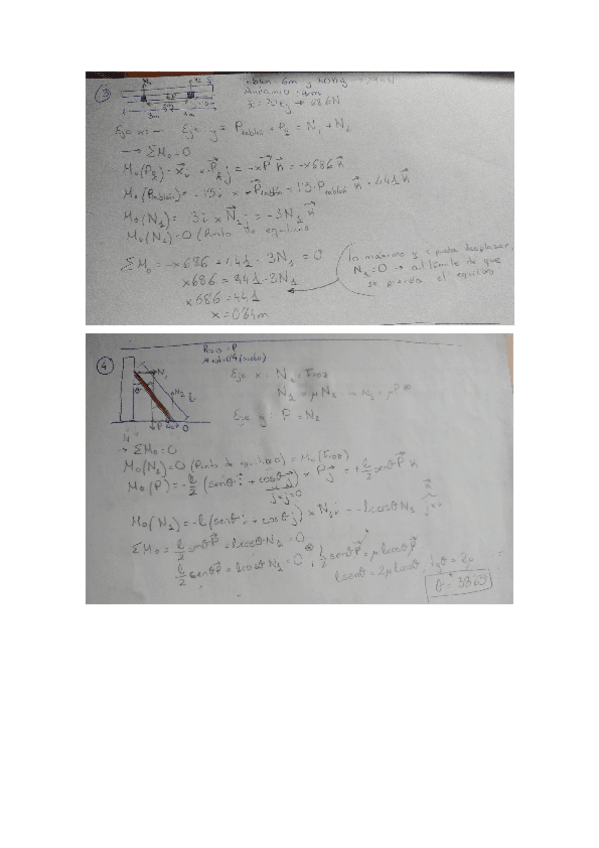 ③
Andamio: 4m
→ 686N
Eje x: — Eje y = P tablón + P₂ = N₁ + N₂
→ ΣM₀ = 0
M₀(P₂) = x i × -P₂ j = -xP k = -x686 k
M₀(P tablón) = 1.5 i × -P tablón = 1.5·P tablón k = 441 k
M₀(N₁) = 3 i × N₁ j = -3N₁ k
M₀(N₂) = 0 (Punto de equilibrio
ΣM₀ = -x686 + 441 - 3N₁ = 0
x686 = 441 - 3N₁
x686 = 441
x = 0,64m
lo máximo q puede desplazar
N₁ = 0 → al límite de que
se pierda el equilibrio
④
Peso = P
Eje x: N₁ = Froz
N₁ = μN₂ → N₁ = μP ⊛
Eje y: P = N₂
→ ΣM₀ = 0
M₀(N₂) = 0 (Punto de equilibrio) = M₀(Froz)
M₀(P) = -l/2 (senθ i + cosθ j) × P j = + l/2 senθ P k
j × j = 0
M₀(N₁) = -l (senθ i + cosθ j) × N₁ i = -l cosθ N₁ j × i
ΣM₀ = l/2 senθ P - l cosθ N₁ = 0
l/2 senθ P = l cosθ N₁ = 0 ⊛, l/2 senθ P = μ l cosθ P
l senθ = 2μ l cosθ, tgθ = 2μ
θ = 38,65°